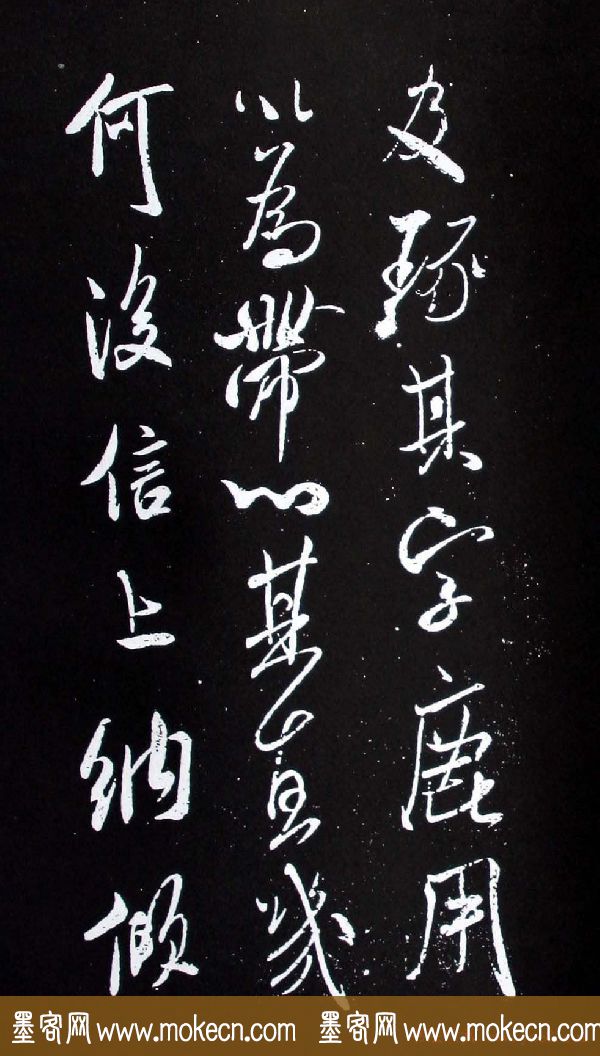 及琢其字鹿用
以為帶以某直幾
何後信上納傾
墨客网 www.mokecn.com 墨客网 www.mokecn.com